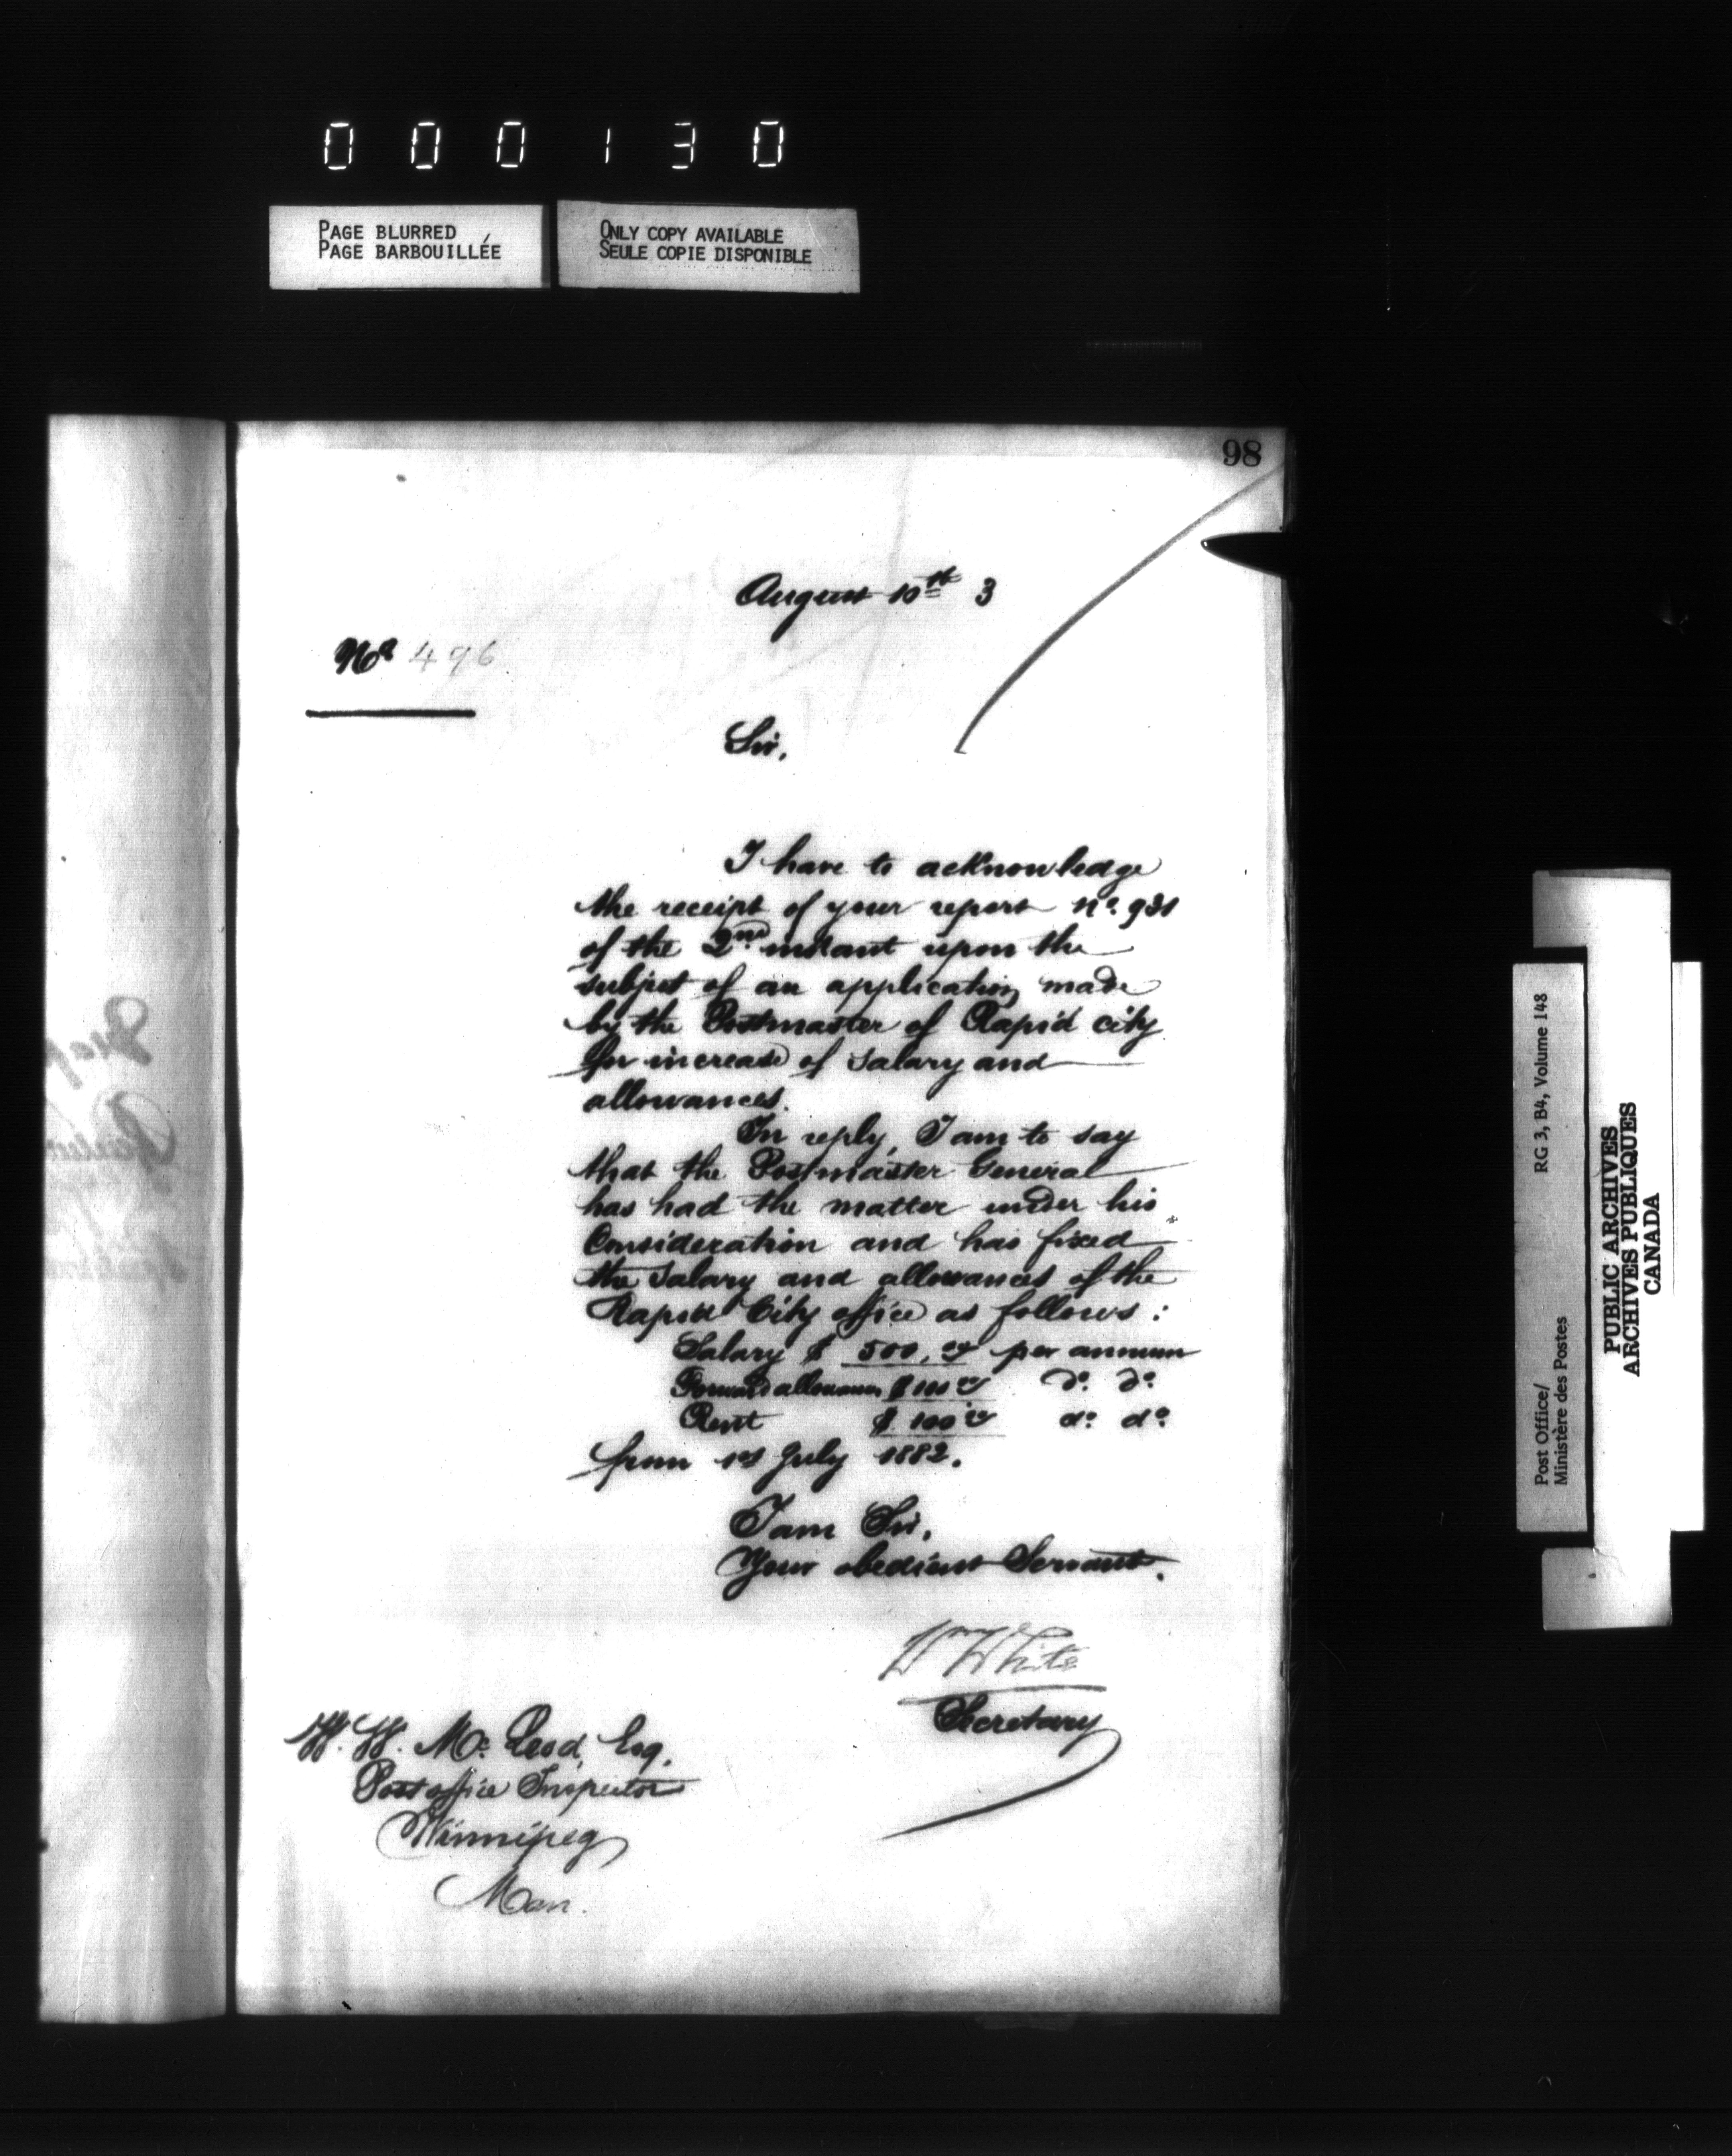 000130
PAGE BLURRED
PAGE BARBOUILLÉE
ONLY COPY AVAILABLE
SEULE COPIE DISPONIBLE
98
August 10th 3
No 496
Sir,
I have to acknowledge
the receipt of your report No. 931
of the 2nd instant upon the
subject of an application made
by the Postmaster of Rapid city
for increase of salary and
allowances.
In reply, I am to say
that the Postmaster General
has had the matter under his
Consideration and has fixed
the salary and allowances of the
Rapid City office as follows:
Salary $ 500.00 per annum
Forward allowance $100.00 do. do.
Rent $ 100.00 do. do.
from 1st July 1882.
I am Sir,
Your obedient Servant.
Wm White
Secretary
W. W. Mc Leod, Esq.
Post office Inspector
Winnipeg
Man.
Post Office/ RG 3, B4, Volume 148
Ministère des Postes
PUBLIC ARCHIVES
ARCHIVES PUBLIQUES
CANADA